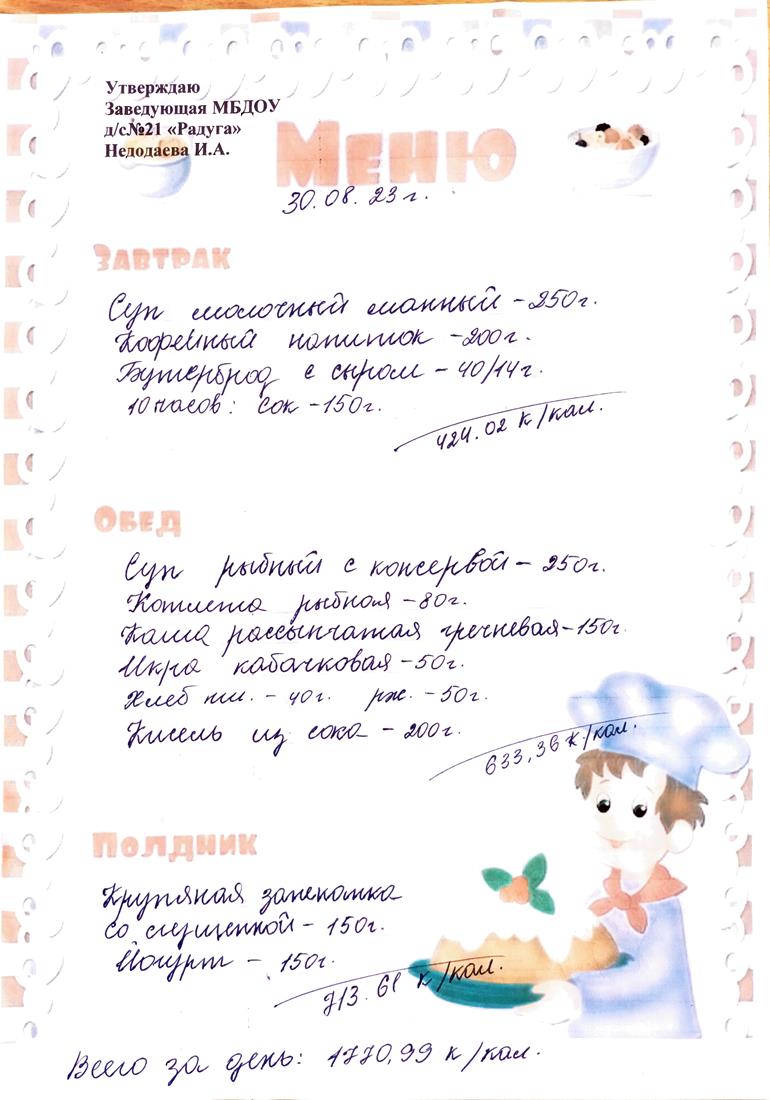 Утверждаю
Заведующая МБДОУ
д/с№21 «Радуга»
Недодаева И.А.
Меню
30.08.23 г.
Завтрак
Суп молочный манный - 250г.
Кофейный напиток - 200г.
Бутерброд с сыром - 40/14г.
10 часов: сок - 150г.
424.02 к/кал.
Обед
Суп рыбный с консервой - 250г.
Котлета рыбная - 80г.
Каша рассыпчатая гречневая - 150г.
Икра кабачковая - 50г.
Хлеб пш. - 40г. рж. - 50г.
Кисель из сока - 200г.
633,36 к/кал.
Полдник
Крупяная запеканка
со сгущенкой - 150г.
Йогурт - 150г.
713.61 к/кал.
Всего за день: 1770,99 к/кал.